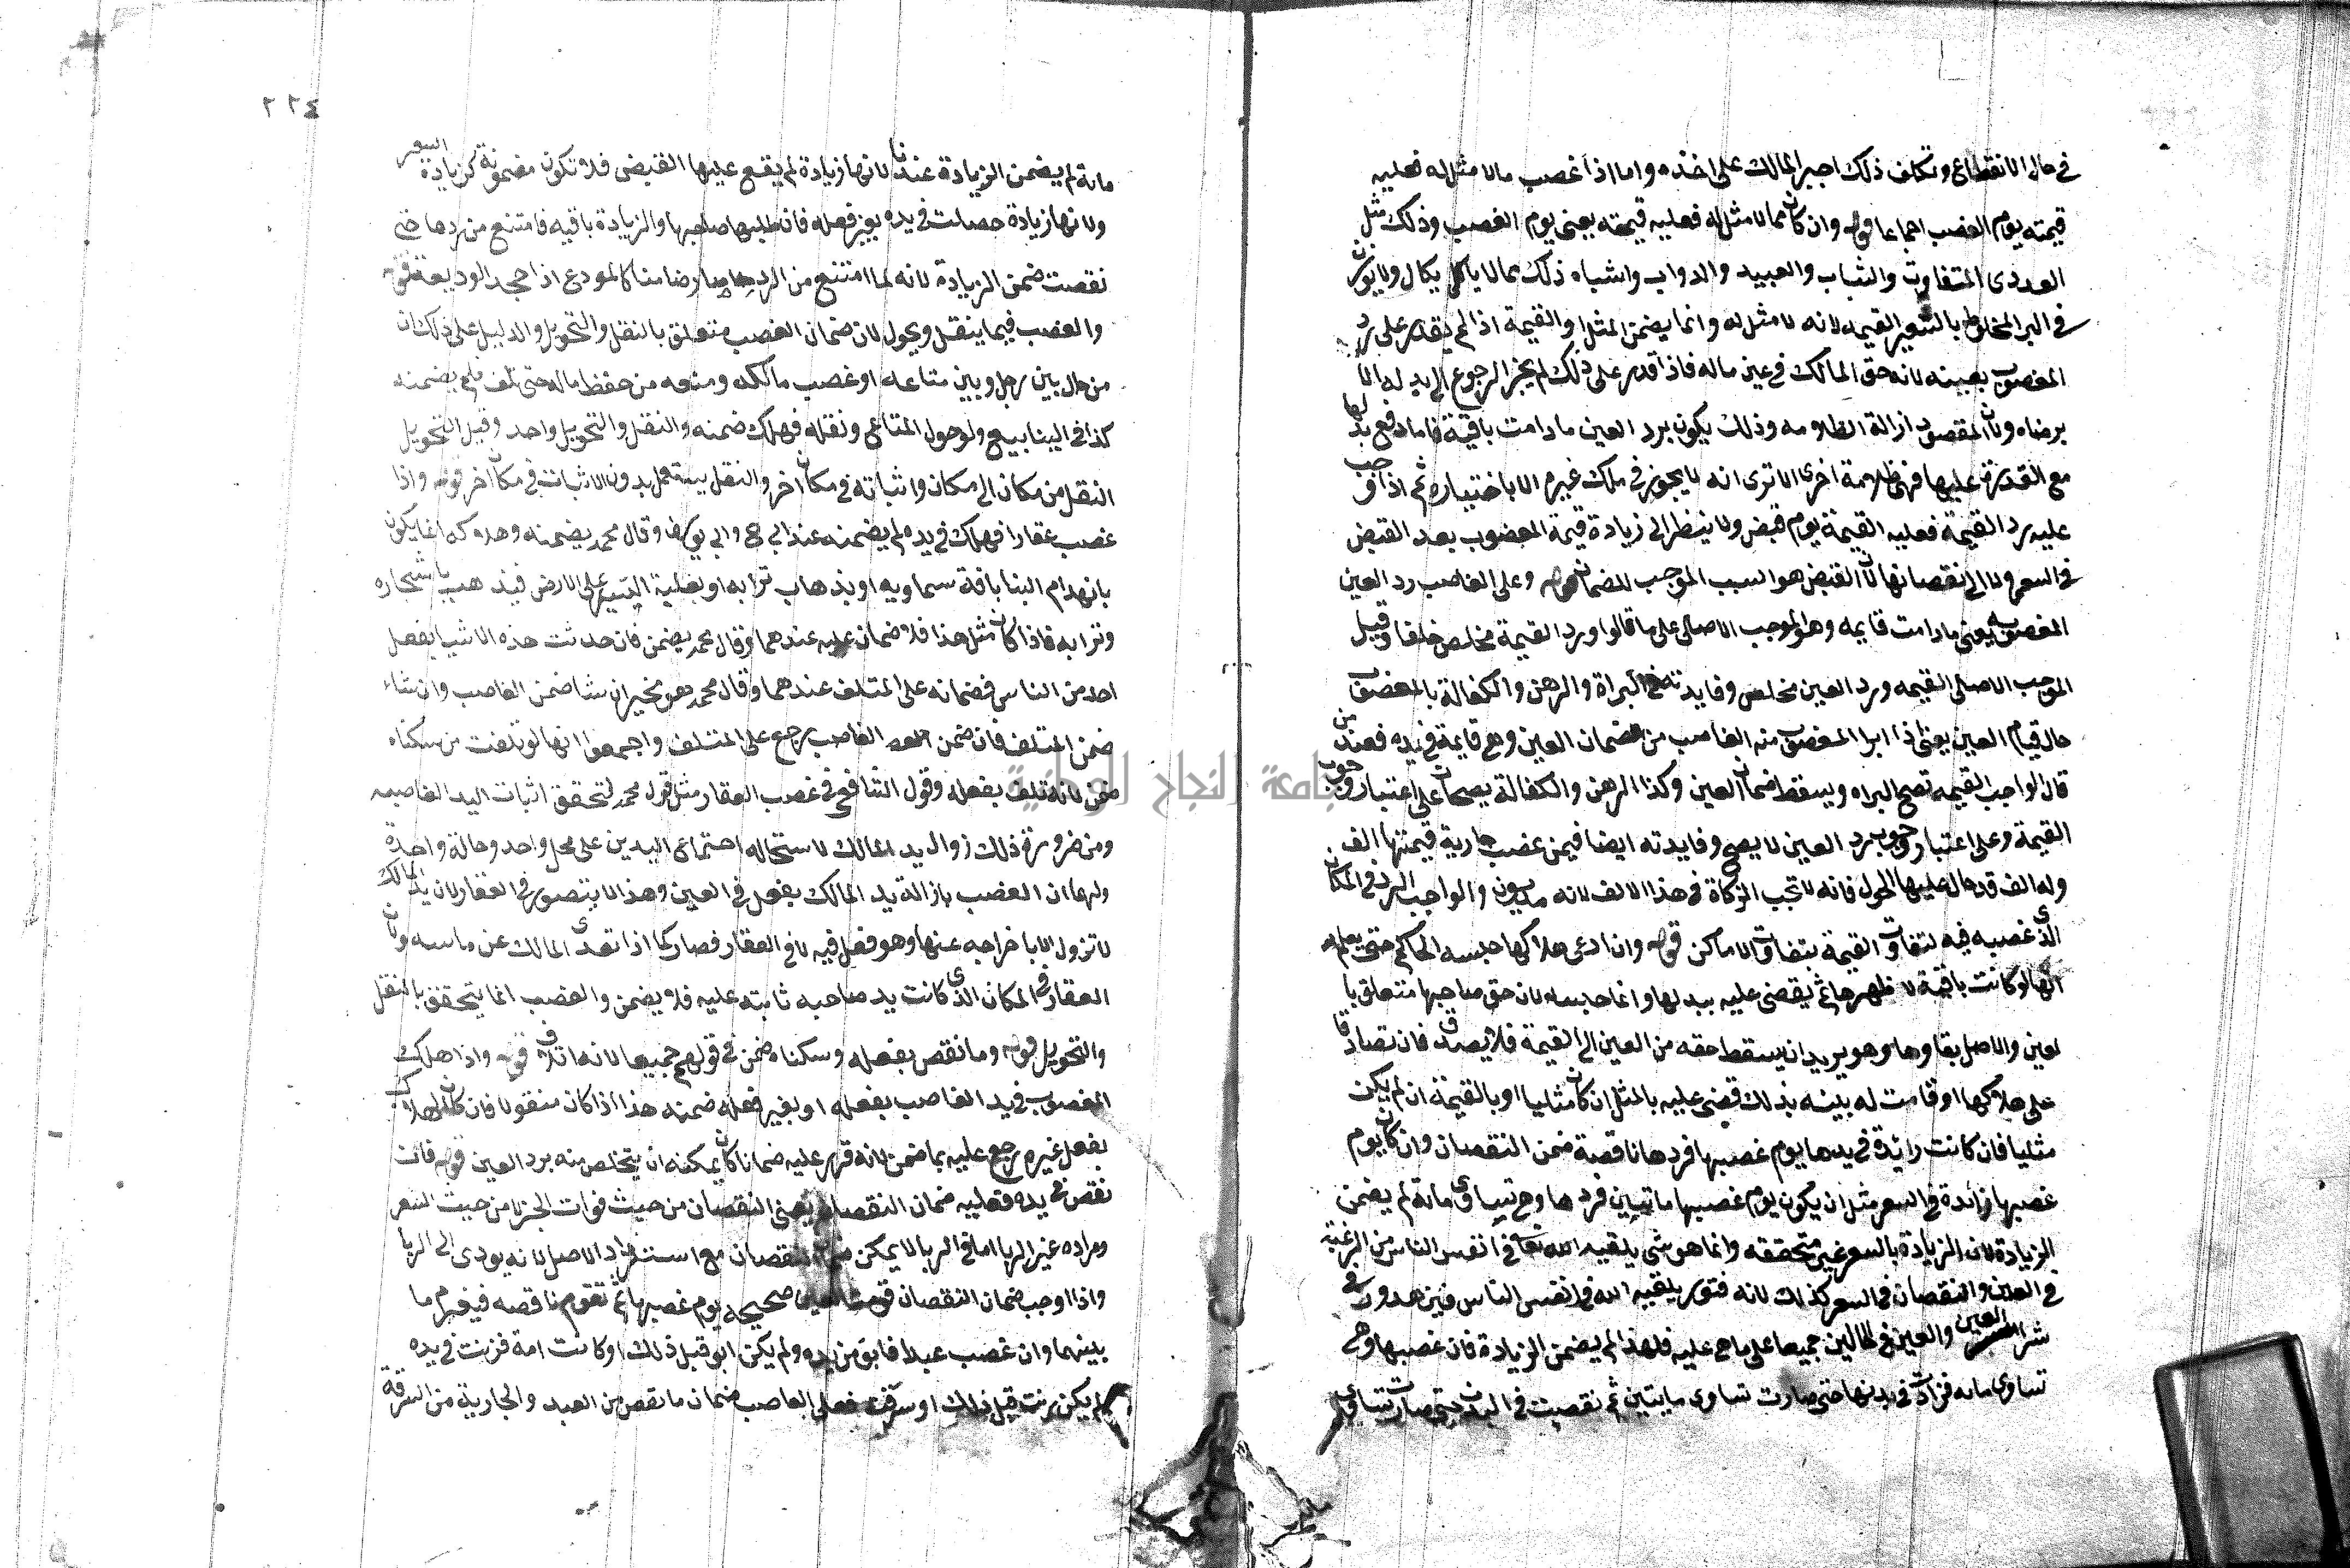 في حال الانقطاع وتكلف ذلك اجبر المالك على اخذه واما اذا غصب مالا مثل له فعليه
قيمته يوم الغصب اجماعا قوله وان كان مما لا مثل له فعليه قيمته يعني يوم الغصب وذلك مثل
العددى المتفاوت والثياب والعبيد والدواب واشباه ذلك مما لا يكال ولا يوزن
في البر المخلوط بالشعير القيمه لانه لا مثل له وانما يضمن المثل او القيمة اذا لم يقدر على رد
المغصوب بعينه لانه حق المالك في عين ماله فاذا قدر على ذلك لم يجز الرجوع الى بدله الا
برضاه ولان المقصود ازالة الظلامه وذلك يكون برد العين ما دامت باقية فاما دفع بدلها
مع القدرة عليها فهي ظلامة اخرى الا ترى انه لا يجوز في ملك غيره الا باختياره ثم اذا وجب
عليه رد القيمة فعليه القيمة يوم قبض ولا ينظر الى زيادة قيمة المغصوب بعد القبض
في السعر ولا الى نقصانها لان القبض هو السبب الموجب للضمان قوله وعلى الغاصب رد العين
المغصوبه يعني ما دامت قايمه وهو الموجب الاصلى على ما قالوا ورد القيمة مخلص خلفا وقيل
الموجب الاصلى القيمه ورد العين مخلص وفايدته في البراة والرهن والكفالة بالمغصوب
حال قيام العين يعني اذا ابرا المغصوب منه الغاصب من ضمان العين وهي قايمة في يده فعند من
قال الواجب القيمه تصح البراه ويسقط ضمان العين وكذا الرهن والكفالة يصحان على اعتبار وجوب
القيمة وعلى اعتبار وجوب رد العين لا يصح وفايدته ايضا فيمن غصب جارية قيمتها الف
وله الف قد حال عليها الحول فانه لا تجب الزكاة في هذا الالف لانه مديون والواجب الرد في المكان
الذى غصبه فيه لتفاوت القيمة بتفاوت الاماكن قوله وان ادعى هلاكها حبسه الحاكم حتى يعلم
انها لو كانت باقية لاظهرها ثم يقضى عليه ببدلها وانما حبسه لان حق صاحبها متعلق با
لعين والاصل بقاوها وهو يريد ان يسقط حقه من العين الى القيمة فلا يصدق فان تصادقا
على هلاكها او قامت له بينه بذلك قضى عليه بالمثل ان كان مثليا او بالقيمة ان لم يكن
مثليا فان كانت زائدة في يدها يوم غصبها فردها ناقصة ضمن النقصان وان كان يوم
غصبها زائدة في السعر مثل ان يكون يوم غصبها مائتين فردها وهي تساوى مائة لم يضمن
الزيادة لان الزيادة بالسعر غير متحققه وانما هو شي يلقيه الله تعالى في انفس الناس من الرغبة
في العين والنقصان في السعر كذلك لانه فتور يلقيه الله في انفس الناس فيزهدون في
شرا العين والعين في الحالين جميعا على ما هي عليه فلهذا لم يضمن الزيادة فان غصبها وهي
تساوى مايه فزادت في بدنها حتى صارت تساوى مايتين ثم نقصت في البدن حتى صارت تساوى
٢٢٤
مائة لم يضمن الزيادة عندنا لانها زيادة لم يقع عليها القبض فلا تكون مضمونة كزيادة السعر
ولانها زيادة حصلت في يده بغير فعله فان طلبها صاحبها والزيادة باقيه فامتنع من ردها حتى
نقصت ضمن الزيادة لانه لما امتنع من الرد صار ضامنا كالمودع اذا جحد الوديعة قوله
والغصب فيما ينقل ويحول لان ضمان الغصب متعلق بالنقل والتحويل والدليل على ذلك ان
من حال بين رجل وبين متاعه او غصب مالكه ومنعه من حفظ ماله حتى تلف لم يضمنه
كذا في الينابيع ولو حول المتاع ونقله فهلك ضمنه والنقل والتحويل واحد وقيل التحويل
النقل من مكان الى مكان واثباته في مكان اخر والنقل يستعمل بدون الاثبات في مكان اخر قوله واذا
غصب عقارا فهلك في يده لم يضمنه عند ابي ح وابي يوسف وقال محمد يضمنه وهلاكه انما يكون
بانهدام البنا بافة سماويه او بذهاب ترابه او بغلبة السيل على الارض فيذهب باشجاره
وترابه فاذا كان مثل هذا فلا ضمان عليه عندهما وقال محمد يضمن فان حدثت هذه الاشيا بفعل
احد من الناس فضمانه على المتلف عندهما وقال محمد هو مخير ان شا ضمن الغاصب وان شاء
ضمن المتلف فان ضمن الغاصب رجع على المتلف واجمعوا انها لو تلفت من سكناه
ضمن لانه تلف بفعله وقول الشافعي في غصب العقار مثل قول محمد لتحقق اثبات اليد الغاصبه
ومن ضرورة ذلك زوال يد المالك لاستحاله اجتماع اليدين على محل واحد وحالة واحدة
ولهما ان الغصب بازالة يد المالك بفعل في العين وهذا لا يتصور في العقار لان يد المالك
لا تزول الا باخراجه عنها وهو فعل فيه لا في العقار فصار كما اذا تعدى المالك عن ماسيه ولان
العقار في المكان الذى كانت يد صاحبه ثابته عليه فلا يضمن والغصب انما يتحقق بالنقل
والتحويل قوله وما نقص بفعله وسكناه ضمن في قولهم جميعا لانه اتلاف قوله واذا هلك
المغصوب في يد الغاصب بفعله او بغير فعله ضمنه هذا اذا كان منقولا فان كان الهلاك
بفعل غيره رجع عليه بما ضمن لانه قرر عليه ضمانا كان يمكنه ان يتخلص منه برد العين قوله فان
نقص في يده فعليه ضمان النقصان يعني النقصان من حيث فوات الجزء لا من حيث السعر
ومراده غير الربا اما في الربا لا يمكن ضمان النقصان مع استرداد الاصل لانه يودى الى الربا
واذا وجب ضمان النقصان قومت العين صحيحه يوم غصبها ثم تقوم ناقصه فيغرم ما
بينهما وان غصب عبدا فابق من يده ولم يكن ابق قبل ذلك او كانت امة فزنت في يده
لم يكن زنت قبل ذلك او سرقت فعلى الغاصب ضمان ما نقص من العبد والجارية من السرقة
جامعة النجاح الوطنية